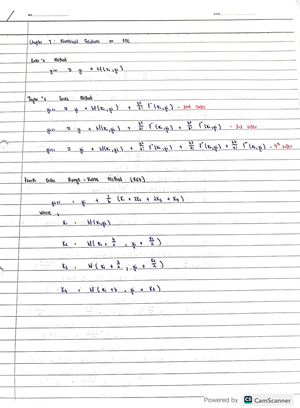 Chapter 7 : Numerical Solutions on ODE
Euler's Method
yi+1 = yi + hf(xi, yi)
Taylor's Series Method
yi+1 = yi + hf(xi, yi) + h²/2! f'(xi, yi) - 2nd order
yi+1 = yi + hf(xi, yi) + h²/2! f'(xi, yi) + h³/3! f''(xi, yi) - 3rd order
yi+1 = yi + hf(xi, yi) + h²/2! f'(xi, yi) + h³/3! f''(xi, yi) + f'''(xi, yi) - 4th order
Fourth Order Runge - Kutta Method (RK4)
yi+1 = yi + 1/6 (K1 + 2K2 + 2K3 + K4)
where,
K1 = hf(xi, yi)
K2 = hf(xi + h/2, yi + K1/2)
K3 = hf(xi + h/2, yi + K2/2)
K4 = hf(xi + h, yi + K3)
Powered by CS CamScanner